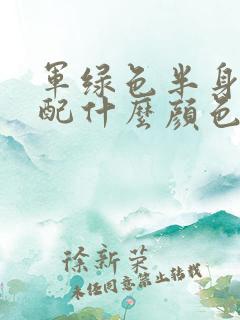 军绿色半身
配什麼顔色
徐新荣
未经同意禁止转载